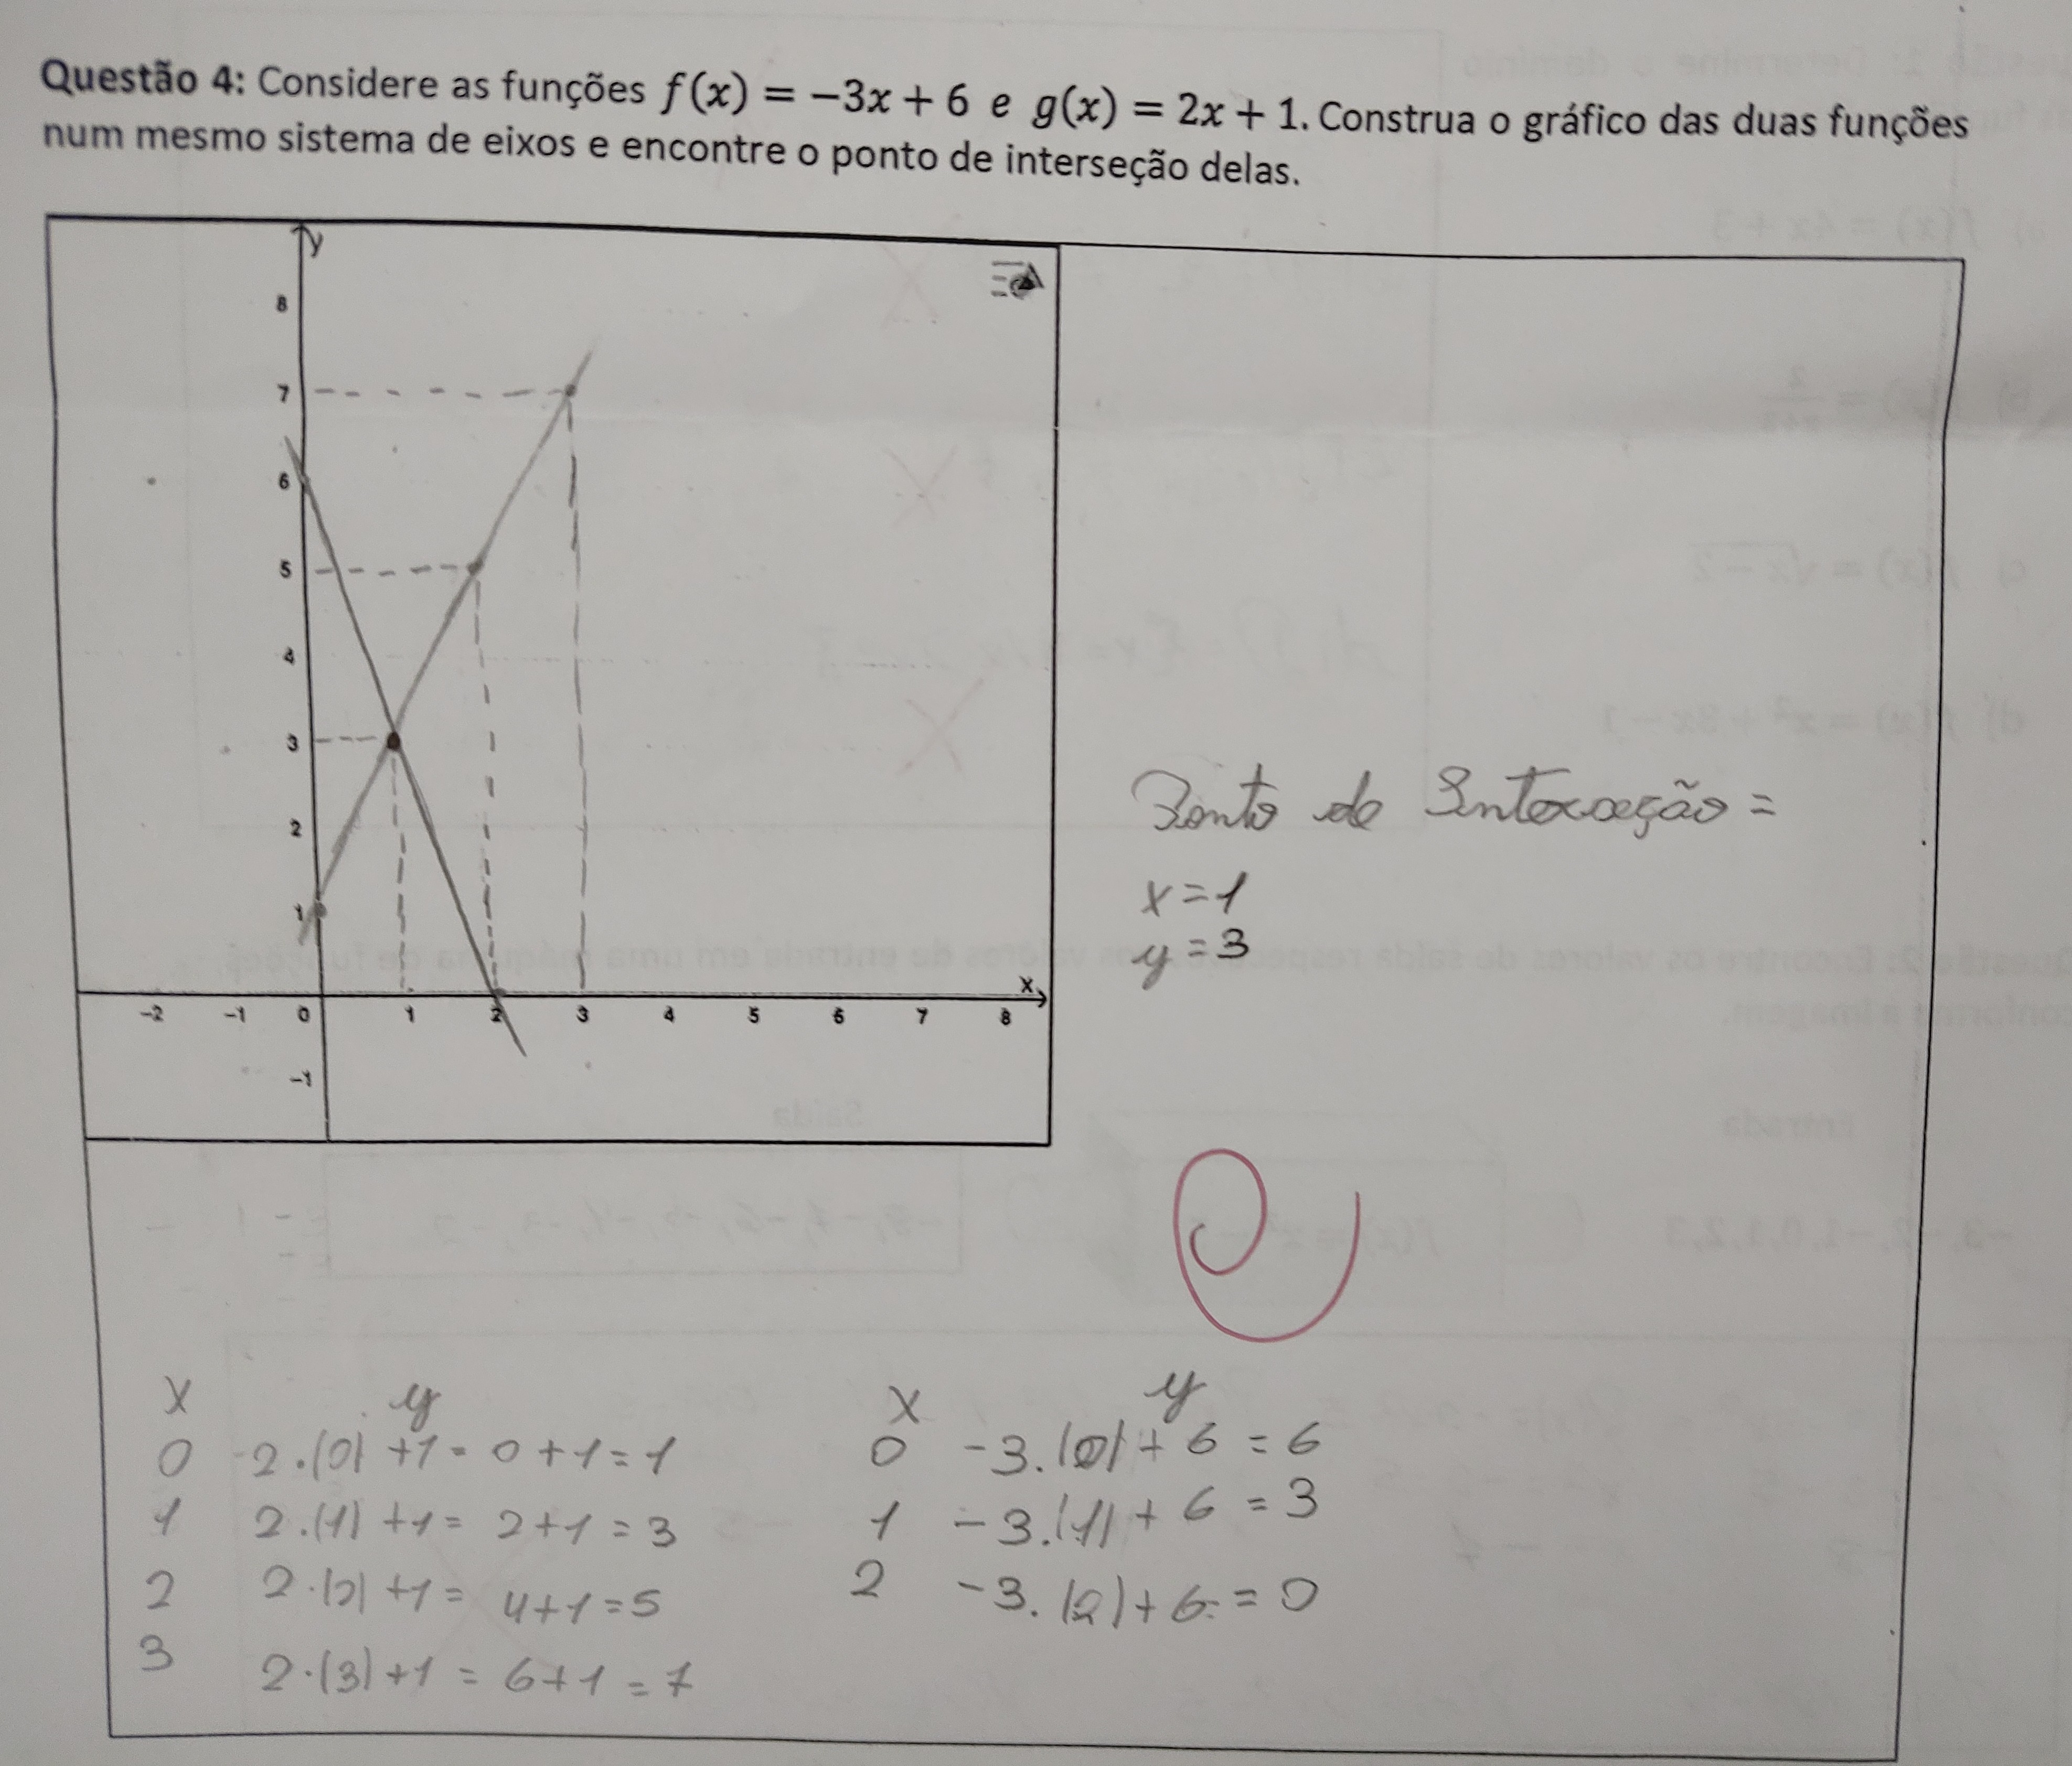 Questão 4: Considere as funções f(x) = −3x + 6 e g(x) = 2x + 1. Construa o gráfico das duas funções
num mesmo sistema de eixos e encontre o ponto de interseção delas.
y
8
7
6
5
4
3
2
1
x
-2 -1 0 1 2 3 4 5 6 7 8
-1
Ponto de
x=1
y=3
x y
0 2.(0) +1= 0+1=1
1 2.(1) +1= 2+1=3
2 2.(2) +1= 4+1=5
3 2.(3)+1 = 6+1=7
x y
0 -3.(0)+6 = 6
1 -3.(1)+6 = 3
2 -3.(2)+6 = 0